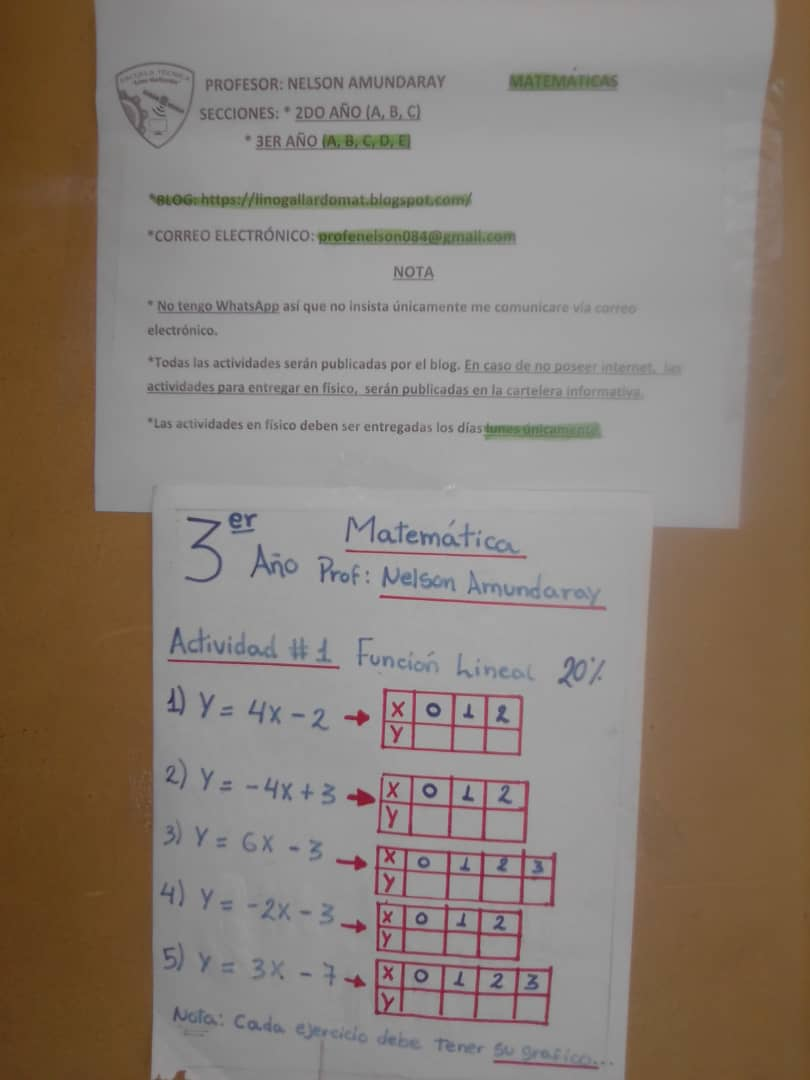 ESCUELA TÉCNICA
PROFESOR: NELSON AMUNDARAY MATEMÁTICAS
SECCIONES: * 2DO AÑO (A, B, C)
* 3ER AÑO (A, B, C, D, E)
*BLOG: https://linogallardomat.blogspot.com/
*CORREO ELECTRÓNICO: profenelson084@gmail.com
NOTA
* No tengo WhatsApp así que no insista únicamente me comunicare vía correo
electrónico.
*Todas las actividades serán publicadas por el blog. En caso de no poseer internet, las
actividades para entregar en físico, serán publicadas en la cartelera informativa.
*Las actividades en físico deben ser entregadas los días lunes únicamente.
3er Año Matemática
Prof: Nelson Amundaray
Actividad #1 Función Lineal 20%
1) Y = 4X - 2 → X 0 1 2
Y
2) Y = -4X + 3 → X 0 1 2
Y
3) Y = 6X - 3 → X 0 1 2 3
Y
4) Y = -2X - 3 → X 0 1 2
Y
5) Y = 3X - 7 → X 0 1 2 3
Y
Nota: Cada ejercicio debe tener su grafico...